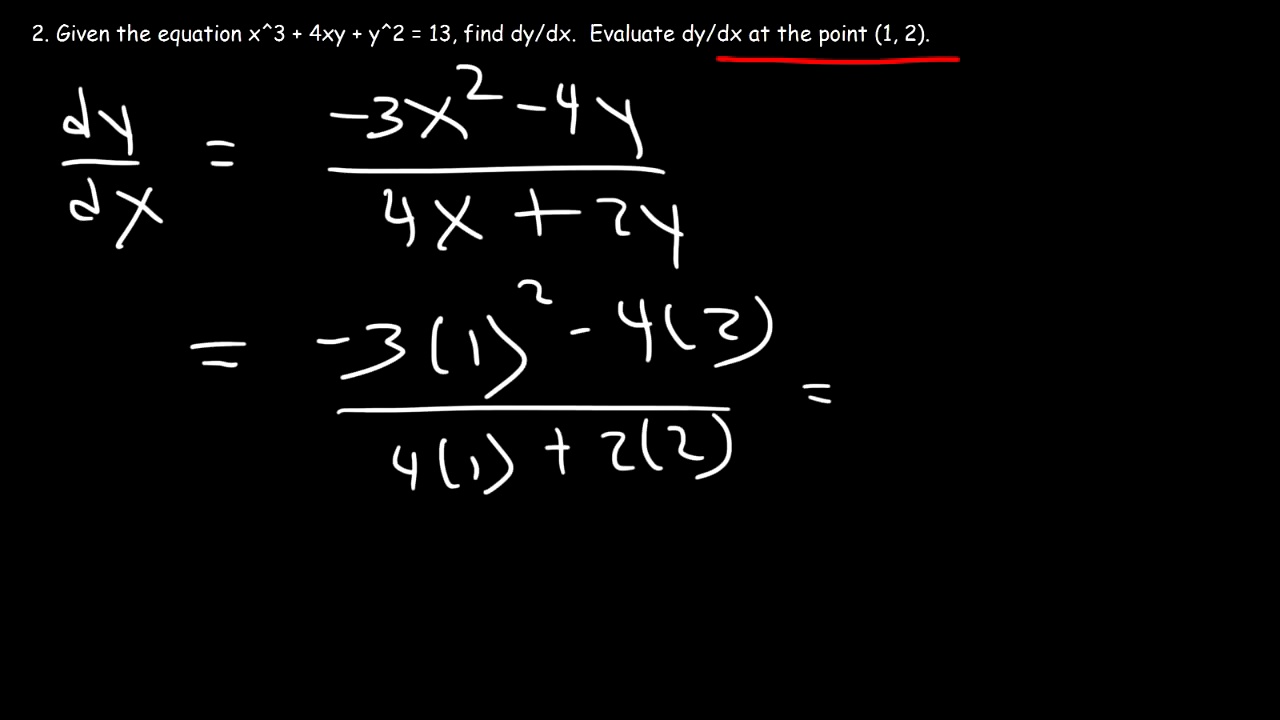 2. Given the equation x^3 + 4xy + y^2 = 13, find dy/dx. Evaluate dy/dx at the point (1, 2).
dy/dx = (-3x² - 4y)/(4x + 2y)
= (-3(1)² - 4(2))/(4(1) + 2(2)) =